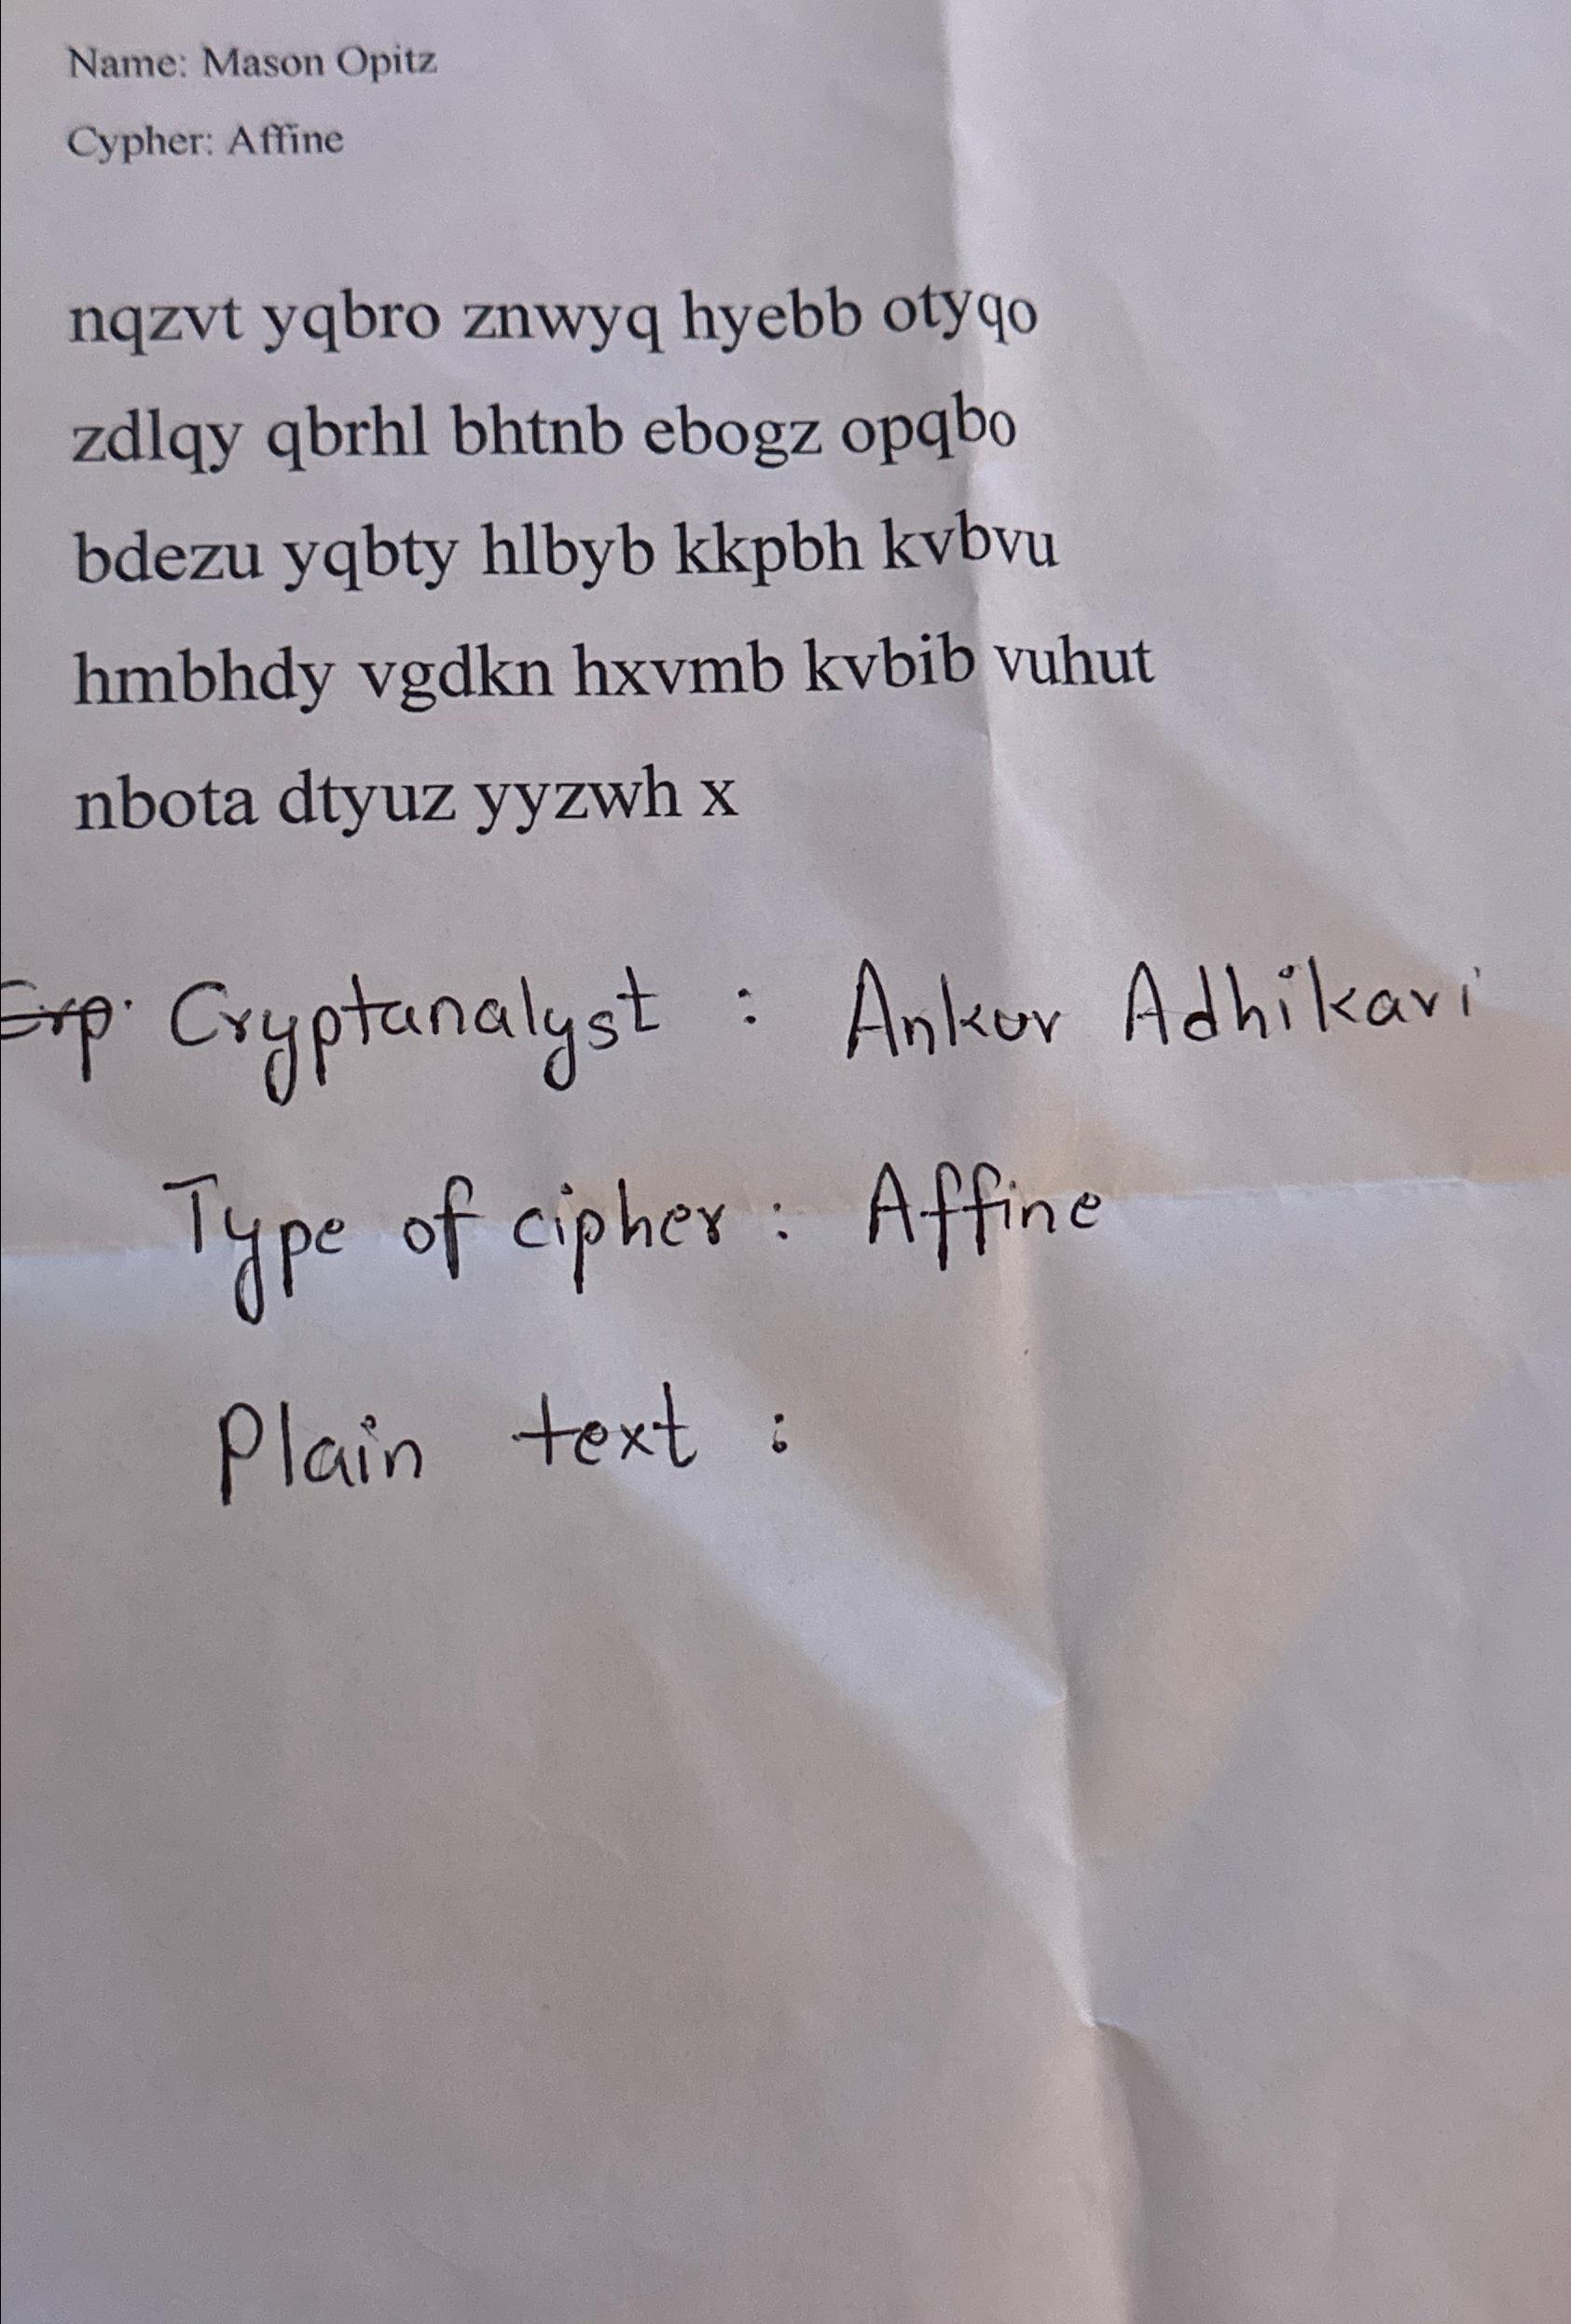 Name: Mason Opitz
Cypher: Affine
nqzvt yqbro znwyq hyebb otyqo
zdlqy qbrhl bhtnb ebogz opqbo
bdezu yqbty hlbyb kkpbh kvbvu
hmbhdy vgdkn hxvmb kvbib vuhut
nbota dtyuz yyzwh x
Cryptanalyst : Ankur Adhikari
Type of cipher : Affine
Plain text :